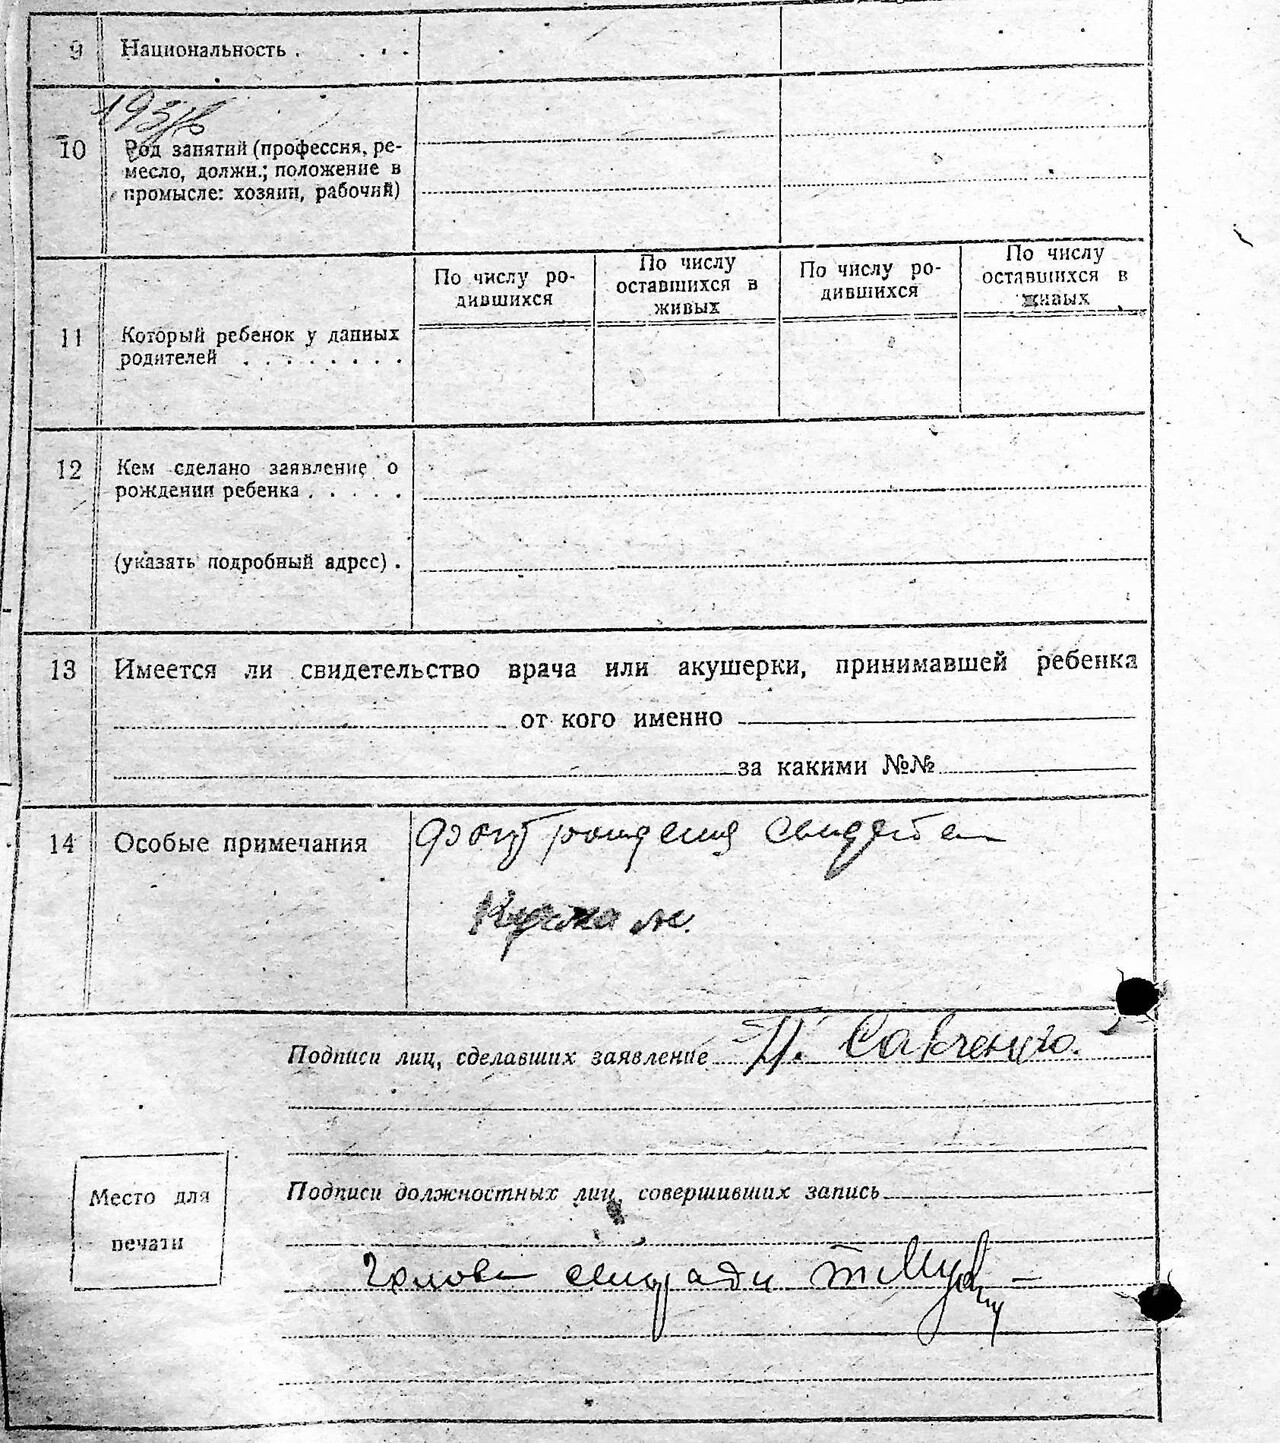 9 Национальность . . . .
10 Род занятий (профессия, ре-
месло, должн.; положение в
промысле: хозяин, рабочий)
По числу ро-
дившихся
По числу
оставшихся в
живых
По числу ро-
дившихся
По числу
оставшихся в
живых
11 Который ребенок у данных
родителей . . . . . . . .
12 Кем сделано заявление о
рождении ребенка . . . . .
(указать подробный адрес) .
13 Имеется ли свидетельство врача или акушерки, принимавшей ребенка
от кого именно
за какими №№
14 Особые примечания
Факт рождения
Подписи лиц, сделавших заявление П. Савченко.
Место для
печати
Подписи должностных лиц, совершивших запись
Голова сельради